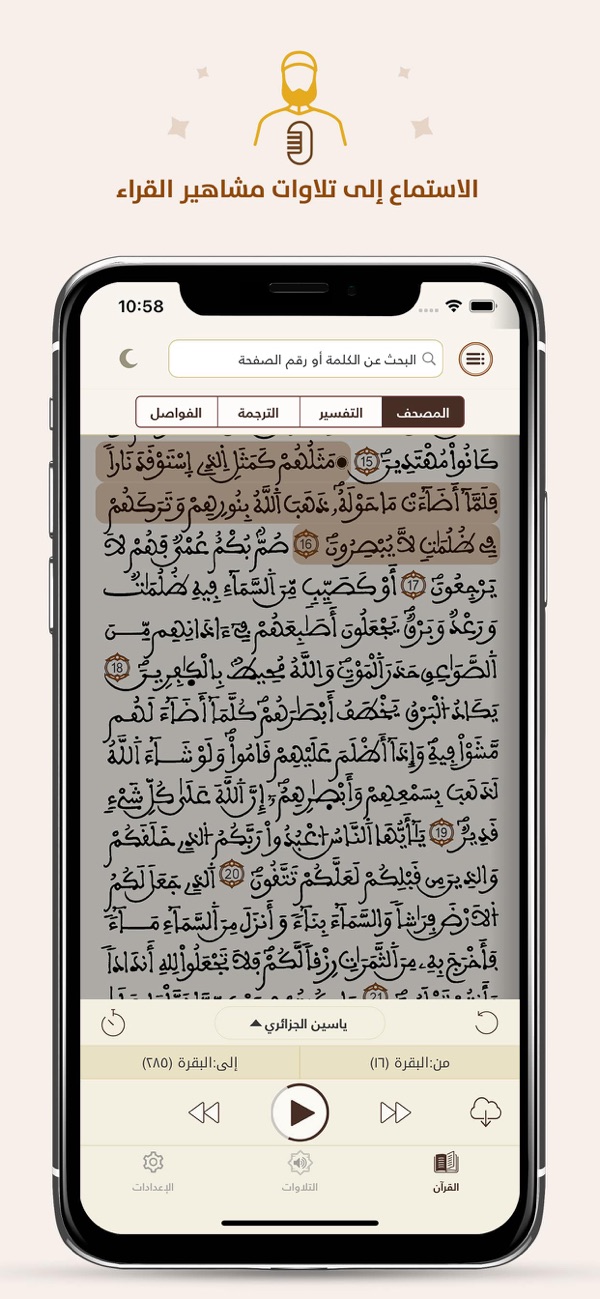 الاستماع إلى تلاوات مشاهير القراء
10:58
البحث عن الكلمة أو رقم الصفحة
المصحف التفسير الترجمة الفواصل
كَانُواْ مُهْتَدِينَ 15 مَثَلُهُمْ كَمَثَلِ اِ۬لذِے اِ۪سْتَوْقَدَ نَاراٗ
فَلَمَّآ أَضَآءَتْ مَا حَوْلَهُۥ ذَهَبَ اَ۬للَّهُ بِنُورِهِمْ وَتَرَكَهُمْ
فِے ظُلُمَٰتٖ لَّا يُبْصِرُونَ 16 صُمُّۢ بُكْمٌ عُمْيٞ فَهُمْ لَا
يَرْجِعُونَ 17 أَوْ كَصَيِّبٖ مِّنَ اَ۬لسَّمَآءِ فِيهِ ظُلُمَٰتٞ
وَرَعْدٞ وَبَرْقٞ يَجْعَلُونَ أَصَٰبِعَهُمْ فِےٓ ءَاذَانِهِم مِّنَ
اَ۬لصَّوَٰعِقِ حَذَرَ اَ۬لْمَوْتِ وَاللَّهُ مُحِيطُۢ بِالْكٰ۪فِرِينَ 18
يَكَادُ اُ۬لْبَرْقُ يَخْطَفُ أَبْصَٰرَهُمْ كُلَّمَآ أَضَآءَ لَهُم
مَّشَوْاْ فِيهِ وَإِذَآ أَظْلَمَ عَلَيْهِمْ قَامُواْ وَلَوْ شَآءَ اَ۬للَّهُ
لَذَهَبَ بِسَمْعِهِمْ وَأَبْصٰ۪رِهِمُۥٓ إِنَّ اَ۬للَّهَ عَلَىٰ كُلِّ شَےْءٖ
قَدِيرٞ 19 يَٰٓأَيُّهَا اَ۬لنَّاسُ اُ۟عْبُدُواْ رَبَّكُمُ اُ۬لذِے خَلَقَكُمْ
وَالذِينَ مِن قَبْلِكُمْ لَعَلَّكُمْ تَتَّقُونَ 20 اَ۬لذِے جَعَلَ لَكُمُ
اُ۬لَارْضَ فِرَٰشاٗ وَالسَّمَآءَ بِنَآءٗ وَأَنزَلَ مِنَ اَ۬لسَّمَآءِ مَآءٗ
فَأَخْرَجَ بِهِۦ مِنَ اَ۬لثَّمَرَٰتِ رِزْقاٗ لَّكُمْ فَلَا تَجْعَلُواْ لِلهِ أَندَاداٗ
21
ياسين الجزائري
من:البقرة (١٦) إلى:البقرة (٢٨٥)
القرآن التلاوات الإعدادات